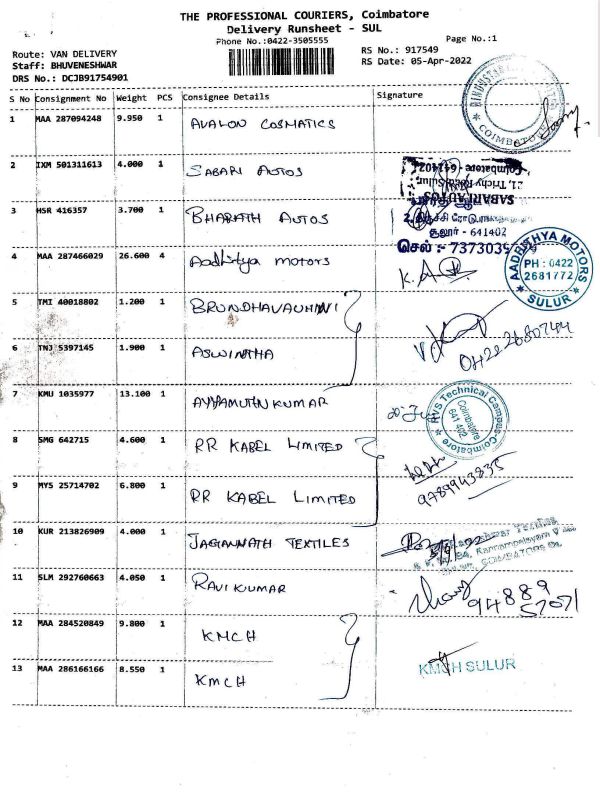 THE PROFESSIONAL COURIERS, Coimbatore
Delivery Runsheet - SUL
Phone No.:0422-3505555
Page No.:1
Route: VAN DELIVERY
RS No.: 917549
Staff: BHUVENESHWAR
RS Date: 05-Apr-2022
DRS No.: DCJB91754901
S No Consignment No Weight PCS Consignee Details Signature
1 MAA 287094248 9.950 1 AVALON COSMATICS
COIMBATORE
2 IXM 501311613 4.000 1 SABARI AUTOS
Coimbatore - 641402
21, Trichy Road, Sulur,
SABARI AUTOS
3 HSR 416357 3.700 1 BHARATH AUTOS
சூலூர் - 641402
செல் : 7373035
4 MAA 287466029 26.600 4 Aadhitya motors
AADHITHYA MOTORS
PH : 0422
2681772
SULUR
5 TMI 40018802 1.200 1 BRUNDHAVAUHINI
6 TNJ 5397145 1.900 1 ASWINTHA
0422 2680744
7 KMU 1035977 13.100 1 AYYAMUTHUKUMAR
RVS Technical Campus-Coimbatore
Coimbatore
641 402
8 SMG 642715 4.600 1 RR KABEL LIMITED
9 MYS 25714702 6.800 1 RR KABEL LIMITED
9789943835
10 KUR 213826909 4.000 1 JAGANNATH TEXTILES
11 SLM 292760663 4.050 1 RAVIKUMAR
94889
57071
12 MAA 284520849 9.800 1 KMCH
13 MAA 286166166 8.550 1 KMCH
KMCH SULUR